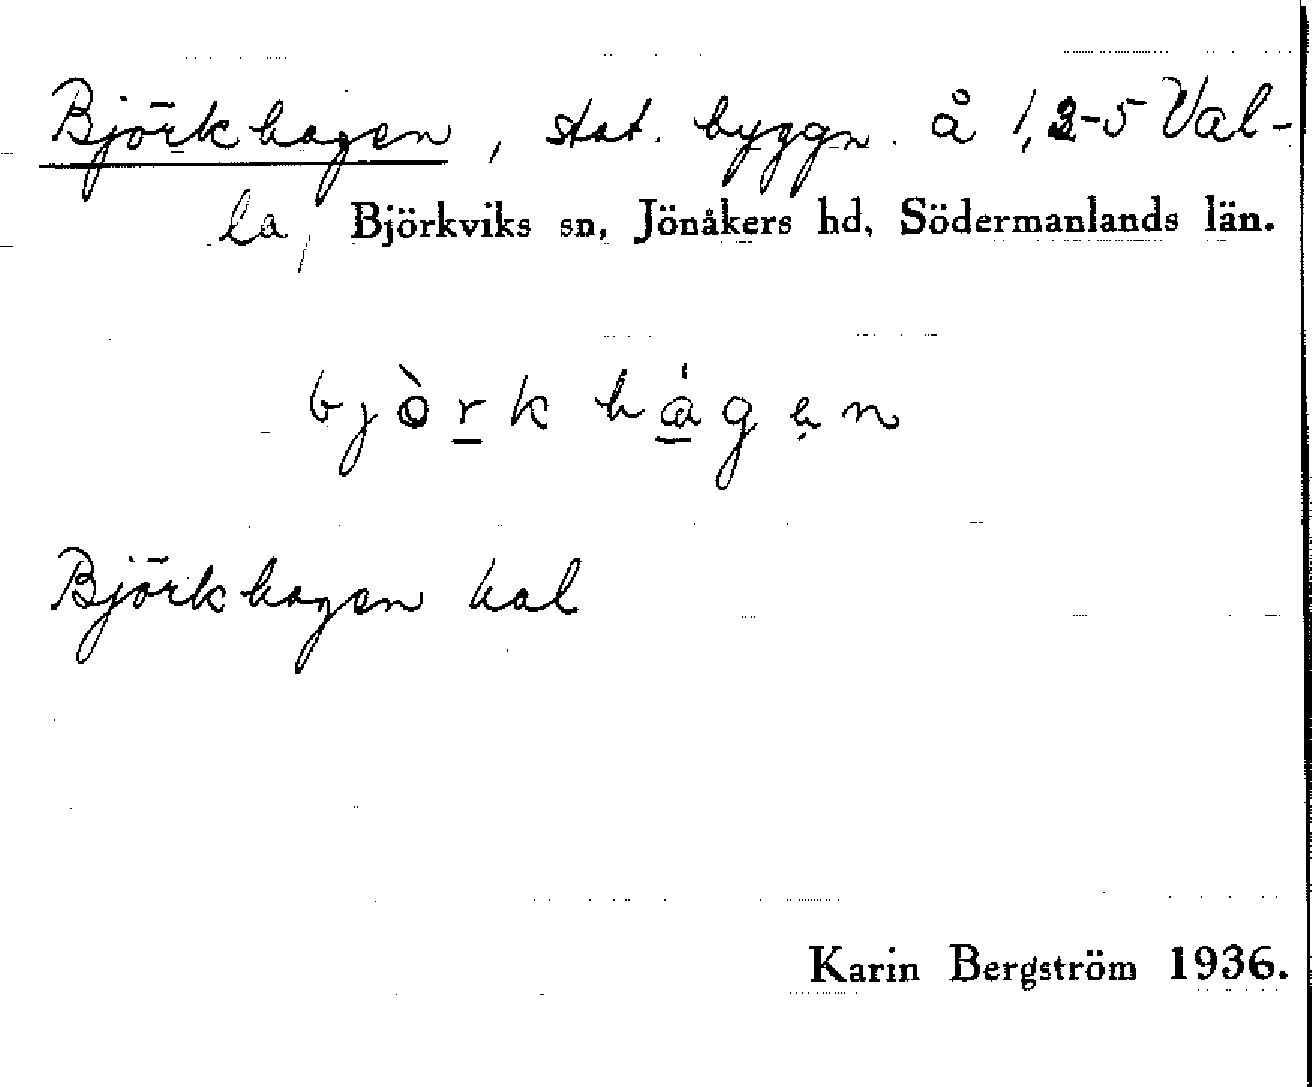 Björkhagen, stat. byggn. å 1,2-5 Val-
la, Björkviks sn, Jönåkers hd, Södermanlands län.
bjòrk hágẹn
Björkhagen kal
Karin Bergström 1936.